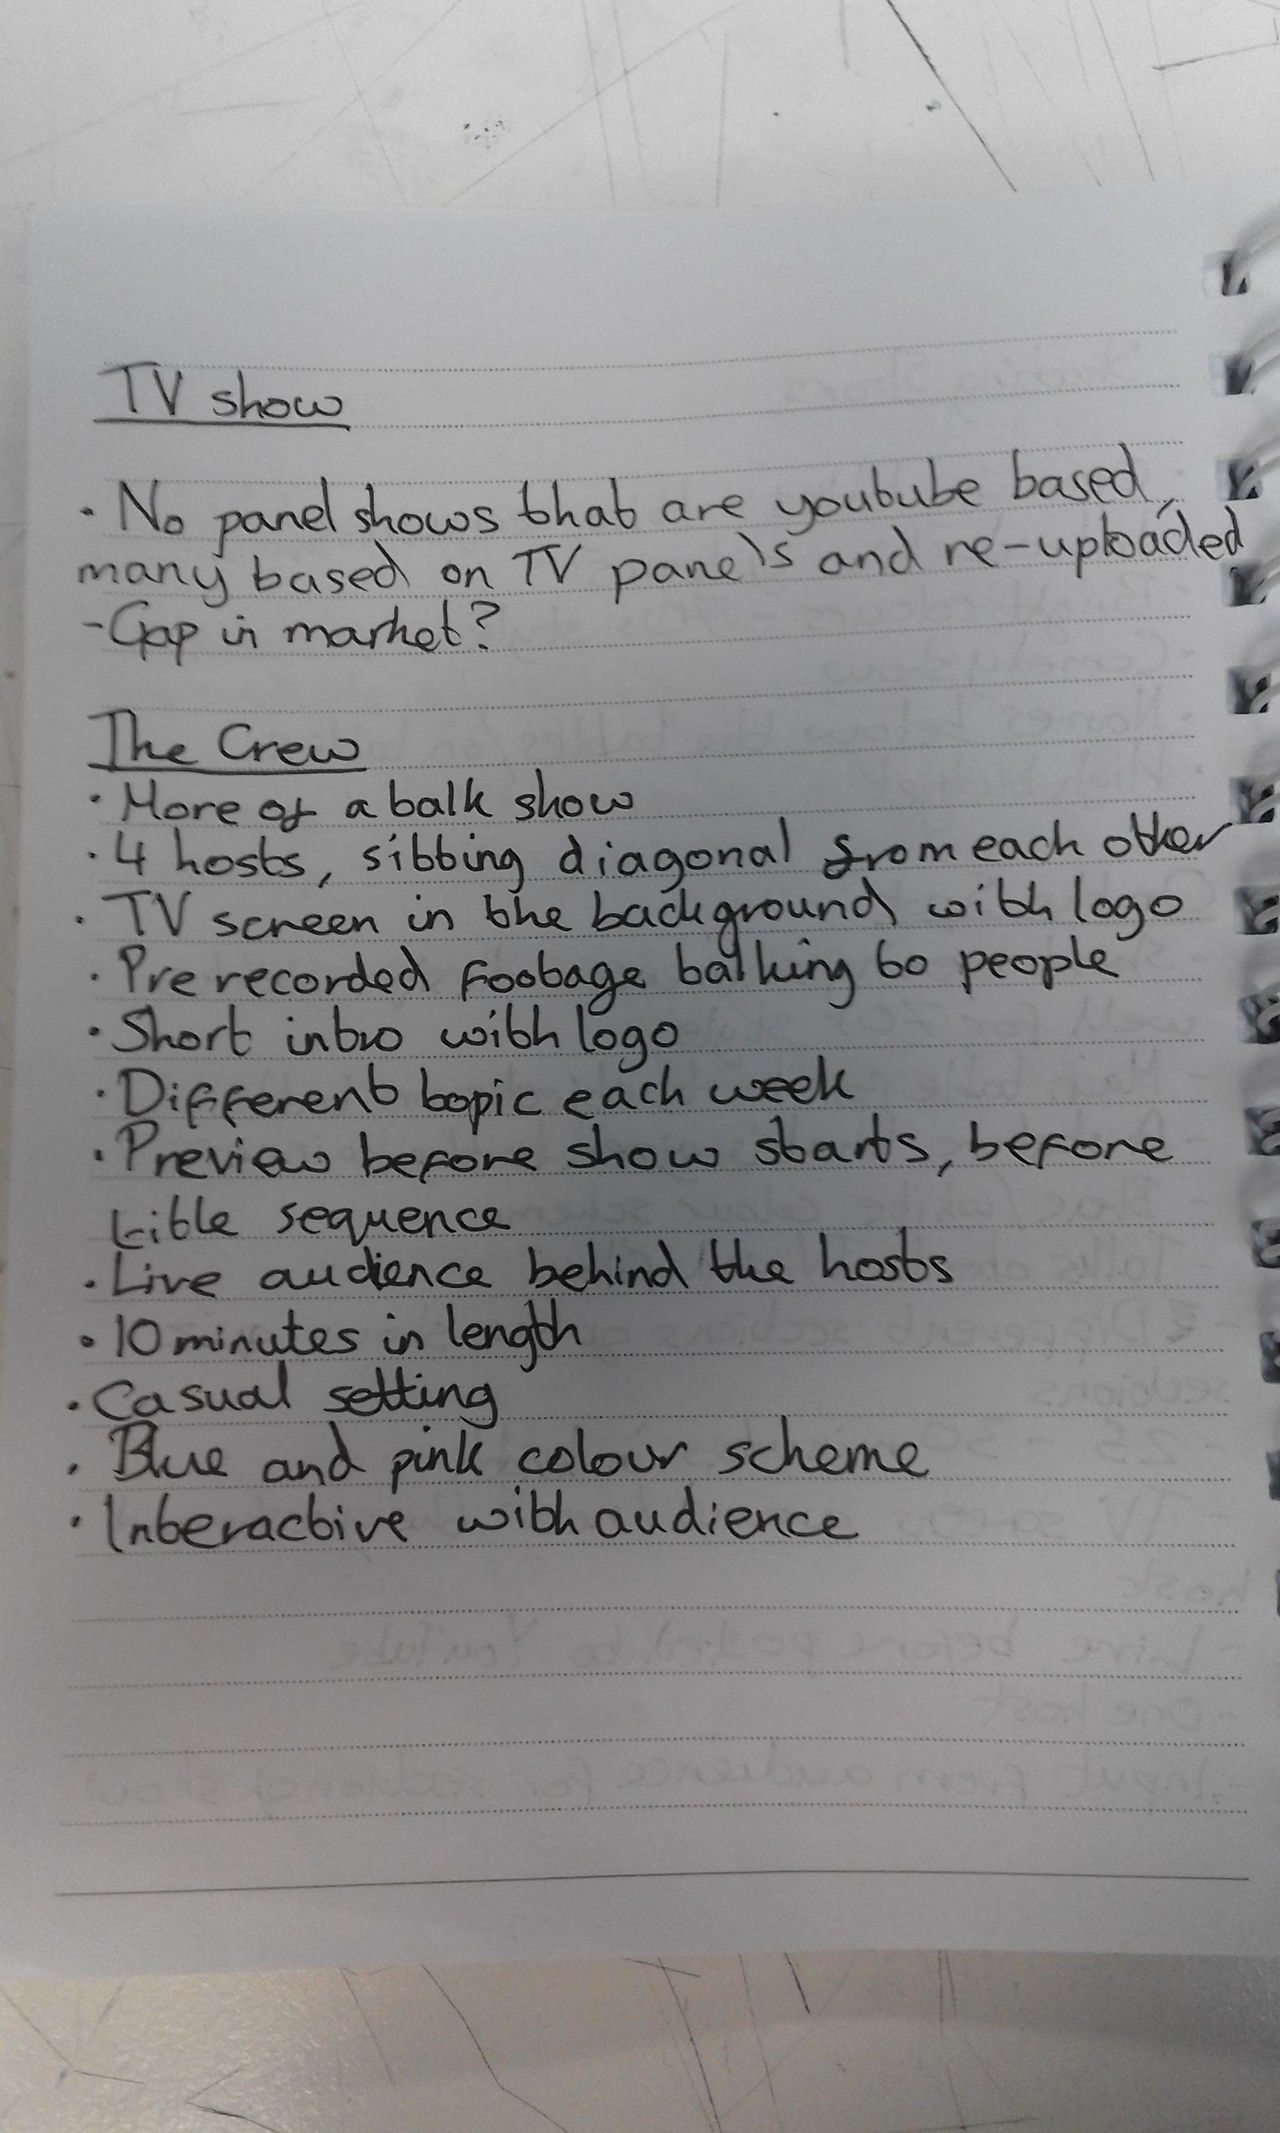 TV show
• No panel shows that are youtube based,
many based on TV panels and re-uploaded
- Gap in market?
The Crew
• More of a talk show
• 4 hosts, sitting diagonal from each other
• TV screen in the background with logo
• Pre recorded footage talking to people
• Short intro with logo
• Different topic each week
• Preview before show starts, before
title sequence
• Live audience behind the hosts
• 10 minutes in length
• Casual setting
• Blue and pink colour scheme
• Interactive with audience